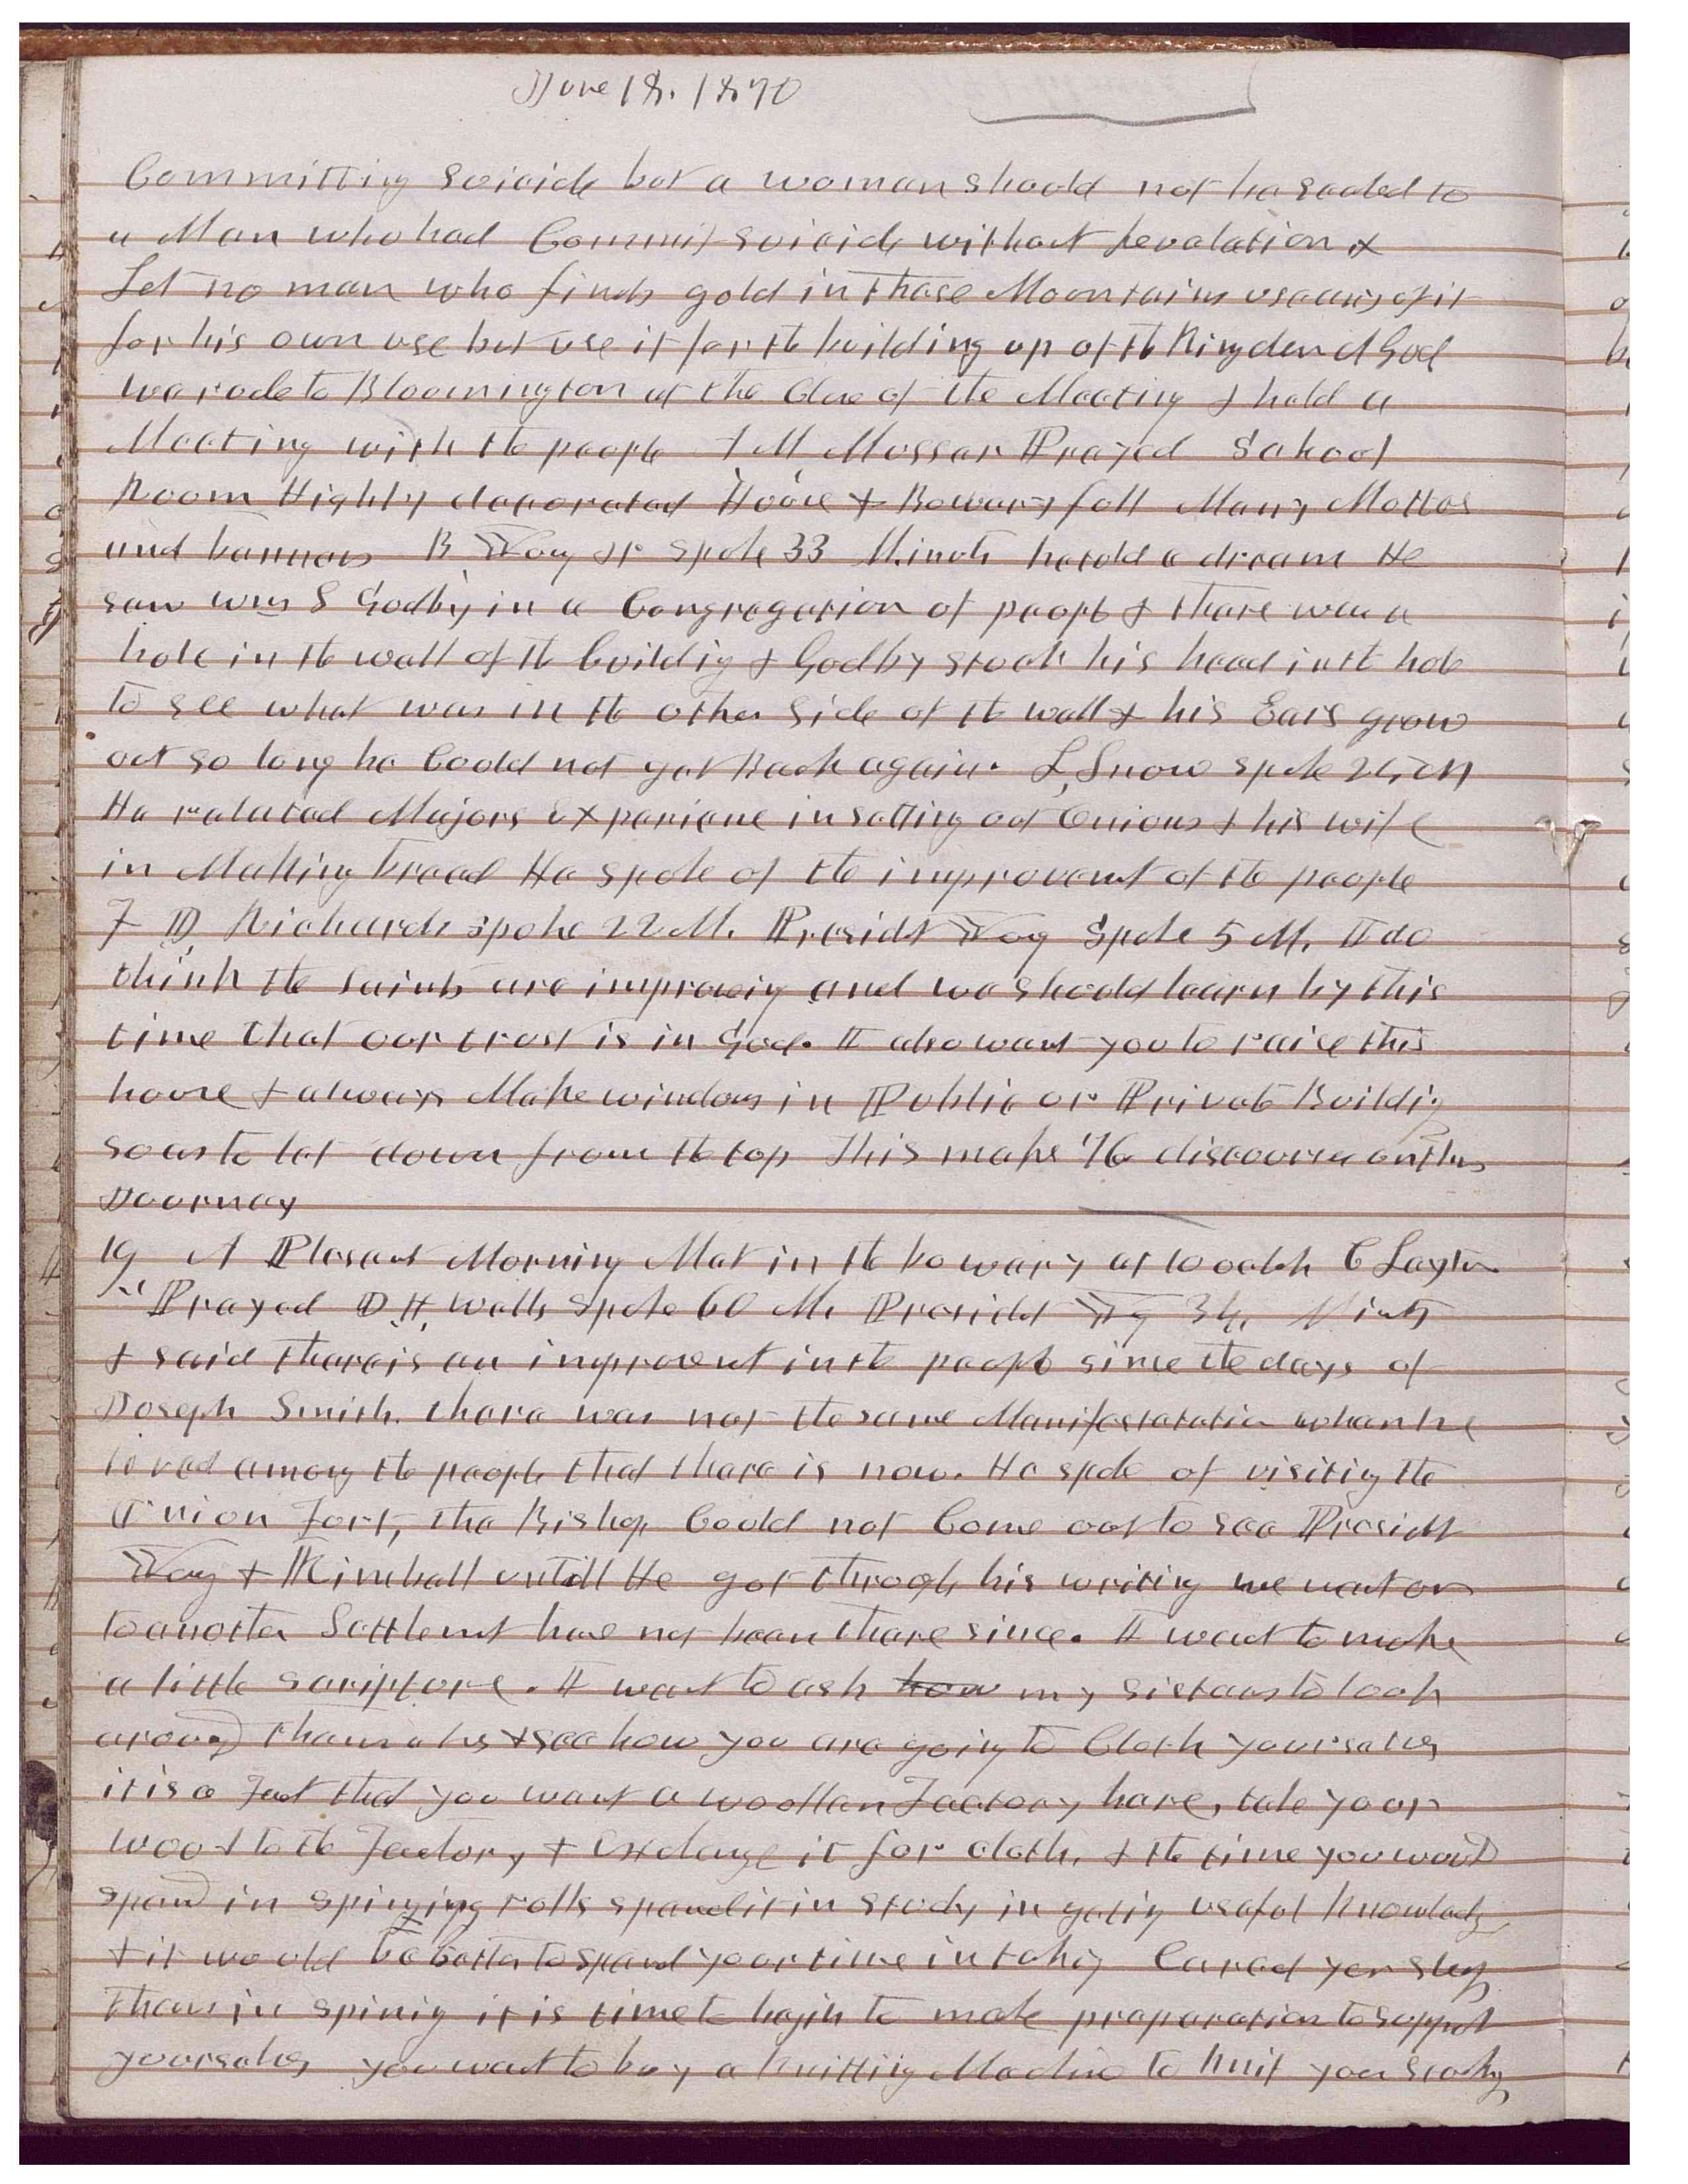 June 18. 1870
Committing Suicide but a woman should not be sealed to
a Man who had Commit suicide without Revelation &
Let no man who finds gold in these Mountains use any of it
for his own use but use it for the building up of the Kingdom of God
we rode to Bloomington at the Close of the Meeting & held a
Meeting with the people A M Musser Prayed School
Room Highly decorated House & Bowery full Many Mottos
and banners B Yg Jr spoke 33 Minuts he told a dream He
saw Wm S Godby in a Congregation of people & there was a
hole in the wall of the buildig & Godby stook his head in the hole
to see what was in the other side of the wall & his Ears grow
out so long he Could not get Back again. L, Snow spoke 24, M
He related Majors Experiane in setting out Onions & his wife
in Making bread He spoke of the improvemt of the people
F D Richards spoke 22 M. Presidt Yg Spoke 5 M, I do
think the saints are improvig and we should learn by this
time that our trust is in God. I also want you to raise this
house & always Make windows in Public or Private Buildig
so as to let down from the top This make 76 discourses on this
Journey
19 A Plesant Morning Met in the bowery at 10 oclok C Layton
Prayed D. H. Wells Spoke 60 M. Presidt Yg 34, Minuts
& said there is an improvent in the people since the days of
Joseph Smith. there was not the same Manifestatatin when he
lived among the people that there is now. He spoke of visitig the
Union Fort, the Bishop Could not Come out to see Presidt
Yg & Kimball untill He got through his writing we went on
to another Settlemt have not been there since. I want to make
a little scripture. I want to ask how my sisters to look
around themselves & see how you are going to Cloth yourselves
it is a fact that you want a woollen Factory here, take your
wool to the Factory & Exchange it for cloth, & the time you would
spend in spinging rolls spend it in study in getig useful knowledg
& it would be better to spend your time in takig Care of yer sleep
than in spinig it is time to begin to make preparation to support
yourselves you want to buy a knittiig Machine to knit your stockgs